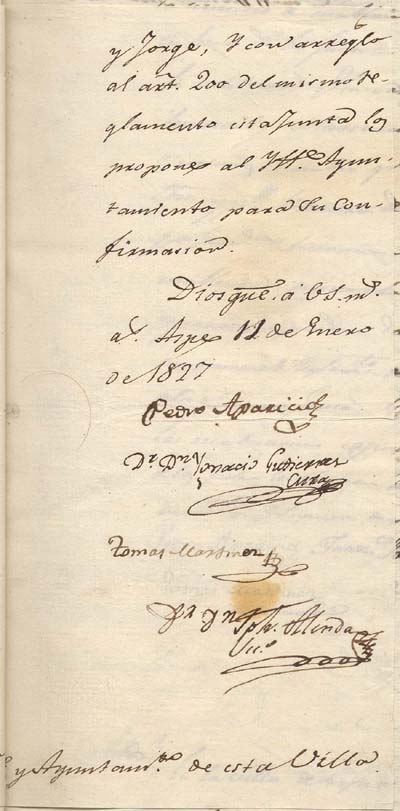 6
y Jorge, Y con arreglo
al art. 200 del mismo Re-
glamento esta Junta los
propone al Ytt.e Ayun-
tamiento para su Con-
firmacion.
Dios gue. a V.S. m.s
a.s Aspe 11 de Enero
de 1827
Pedro Aparicio
Dr. Dn. Ygnacio Gutierrez
Cura
Tomas Martinez
Jph. Almda
y Ayuntam.to de esta Villa.